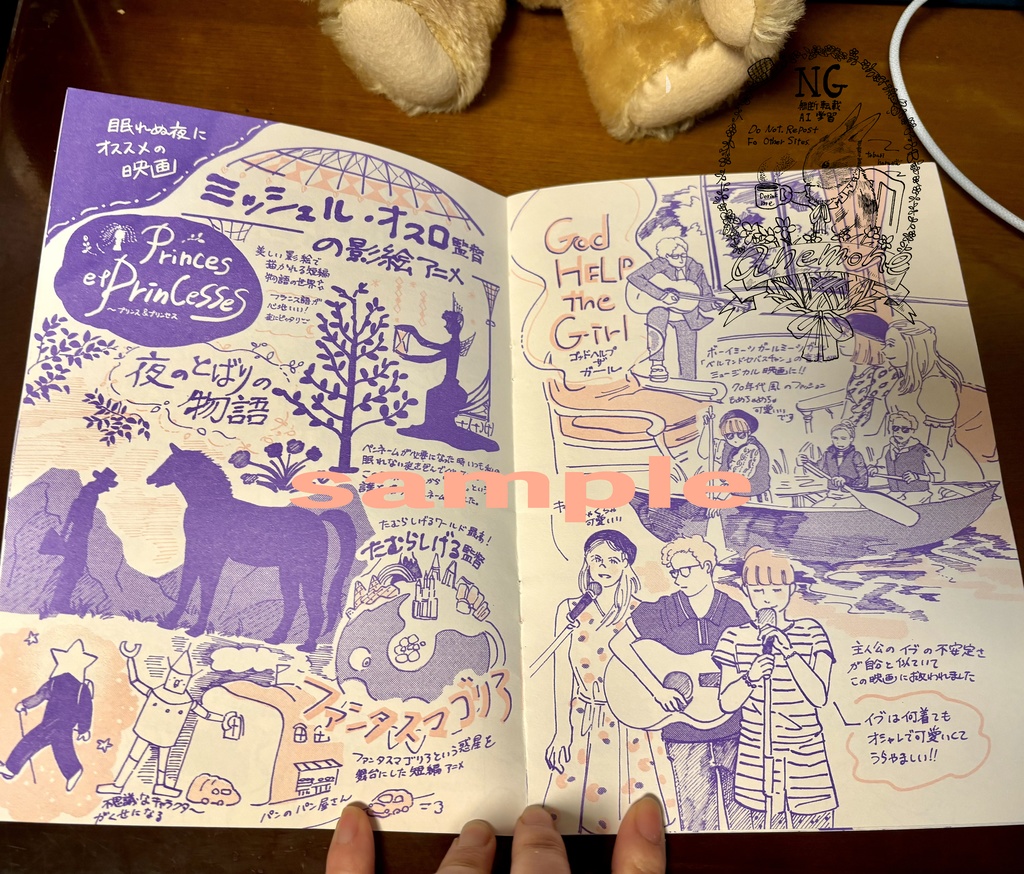 眠れぬ夜に
オススメの
映画
ミッシェル・オスロ監督
の影絵アニメ
Princes
et Princesses
～プリンス&プリンセス
美しい影絵で
描かれる短編
物語の世界や
フランス語が
心地いい!
夜にピッタリで
夜のとばりの
物語
ペンネームが必要になった時いつも私の
たむらしげるワールド最高!
たむらしげる監督
ファンタスマゴリア
ファンタスマゴリアという惑星を
舞台にした短編アニメ
不思議なキャラクター
がくせになる
パンのパン屋さん
God
HELP
the
Girl
ゴッドヘルプ
ザ
ガール
ボーイミーツガールミーツ
「ベルアンドセバスチャン」の
ミュージカル映画に!!
70年代風のファッション
もめちゃめちゃ
可愛い
です
可愛い
主人公のイヴの不安定さ
が自分と似ていて
この映画に救われました
イヴは何着ても
オシャレで可愛いくて
うらやましい!!
sample
NG
無断転載
AI学習
Do Not Repost
To Other Sites
anemone